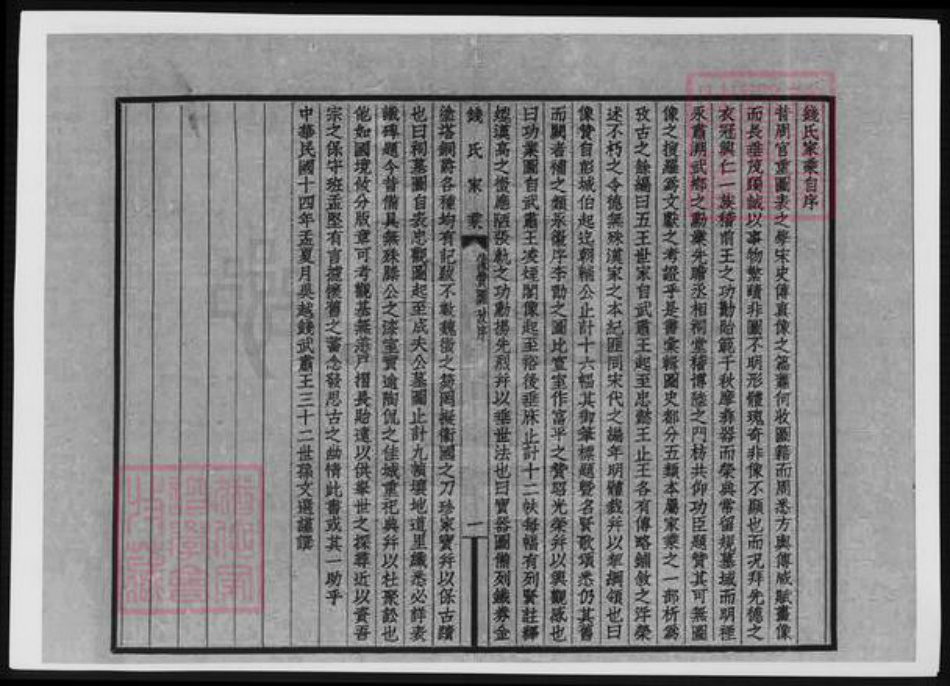 錢氏家乘自序
昔周官重圖表之學宋史傳真像之篇蕭何收圖籍而周悉方輿傅咸賦畫像
而長垂茂躅誠以事物繁賾非圖不明形體瑰奇非像不顯也而況拜先德之
衣冠興仁一族稽前王之功勳貽範千秋摩彝器而榮典常留規墓域而明禋
永肅溯武鄉之勳業先瞻丞相祠堂稽博陸之門榜共仰功臣題贊其可無圖
像之搜羅為文獻之考證乎是書彙輯圖史都分五類本屬家乘之一部析為
攷古之餘編曰五王世家自武肅王起至忠懿王止王各有傳略鋪敘之洋榮
述不朽之令德無殊漢家之本紀匪同宋代之編年明體裁幷以挈綱領也曰
像贊自彭城伯起迄朝輔公止計十六幅其御筆標題暨名賢歌頌悉仍其舊
而闕者補之類永復序李勣之圖比宣室作富平之贊昭光榮幷以興觀感也
曰功業圖自武肅王凌烟閣像起至裕後垂庥止計十二帙每幅有列賢註釋
媲漢高之徵應陋張軌之功勳揚先烈幷以垂世法也曰寶器圖備列鐵券金
錢氏家乘
像贊圖攷序
一
塗塔銅爵各種均有記跋不數魏徵之笏罔擬衞國之刀珍家寶幷以保古蹟
也曰祠墓圖自表忠觀圖起至成夫公墓圖止計九幀壤地道里纖悉必詳表
識碑題今昔備具無殊滕公之漆室實逾陶侃之佳城重祀典幷以杜聚訟也
他如國境攸分版章可考觀基無港戶摺長貽遠以供舉世之探尋近以資吾
宗之保守班孟堅有言攄懷舊之蓄念發思古之幽情此書或其一助乎
中華民國十四年孟夏月吳越錢武肅王三十二世孫文選謹譔